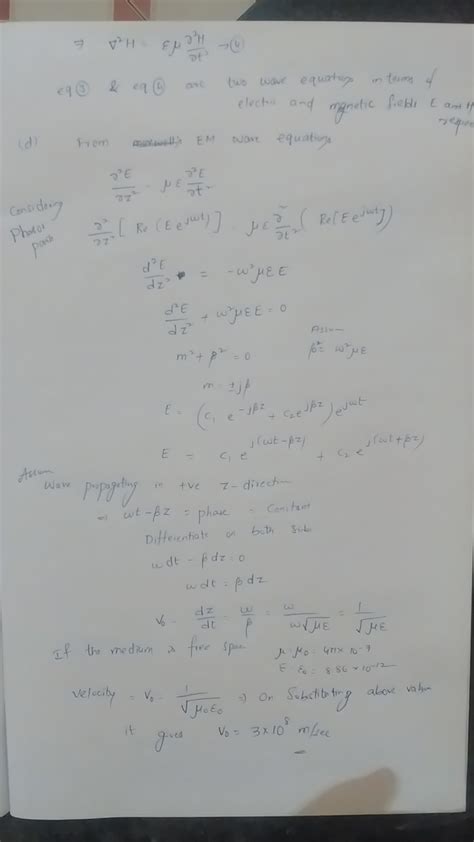 ⇒ ∇²H = εμ ∂²H/∂t² →④
eq③ & eq④ are two wave equations interms of
electric and magnetic fields E and H
(d) From EM wave equations
∂²E/∂z² = με ∂²E/∂t²
Considering
Phasor
∂²/∂z² [Re(E e^jωt)] = με ∂²/∂t² (Re(E e^jωt))
d²E/dz² = -ω²με E
d²E/dz² + ω²με E = 0
m² + β² = 0
Assum
β² = ω²με
m = ±jβ
E = (c₁ e^-jβz + c₂ e^jβz) e^jωt
E = c₁ e^j(ωt-βz) + c₂ e^j(ωt+βz)
Assum
wave propagating in +ve z-direction
⇒ ωt-βz = phase = Constant
Differentiate on both Sub
ωdt - βdz = 0
ωdt = βdz
V₀ = dz/dt = ω/β = ω/ω√με = 1/√με
If the medium is free space
μ = μ₀ = 4π × 10⁻⁷
ε = ε₀ = 8.86 × 10⁻¹²
Velocity = V₀ = 1/√μ₀ε₀ ⇒ On Substituting above values
it gives V₀ = 3×10⁸ m/sec